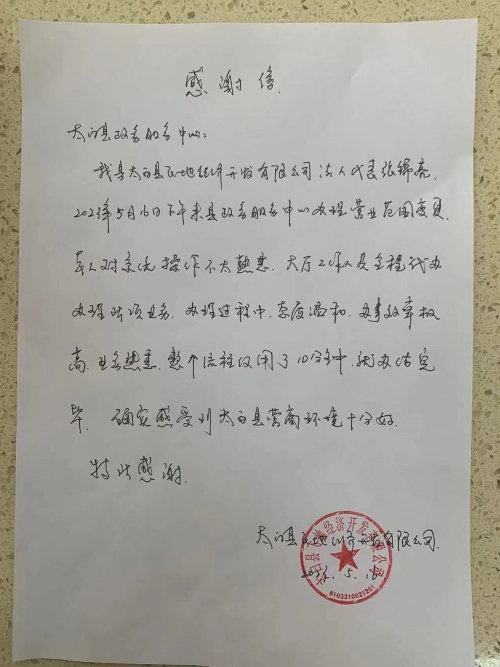 感谢信
太白县政务服务中心：
我是太白县 地经济开发有限公司法人代表张锦亮.
5月16日下午来县政务服务中心办理营业范围变更.
本人对系统操作不太熟悉.大厅工作人员全程代办
办理此项业务.办理过程中.态度温和.办事效率极
高.业务熟悉.整个流程仅用了10分钟.就办结完
毕.确实感受到太白县营商环境十分好.
特此感谢.
太白县 地经济开发有限公司.
5.16
6103310021201